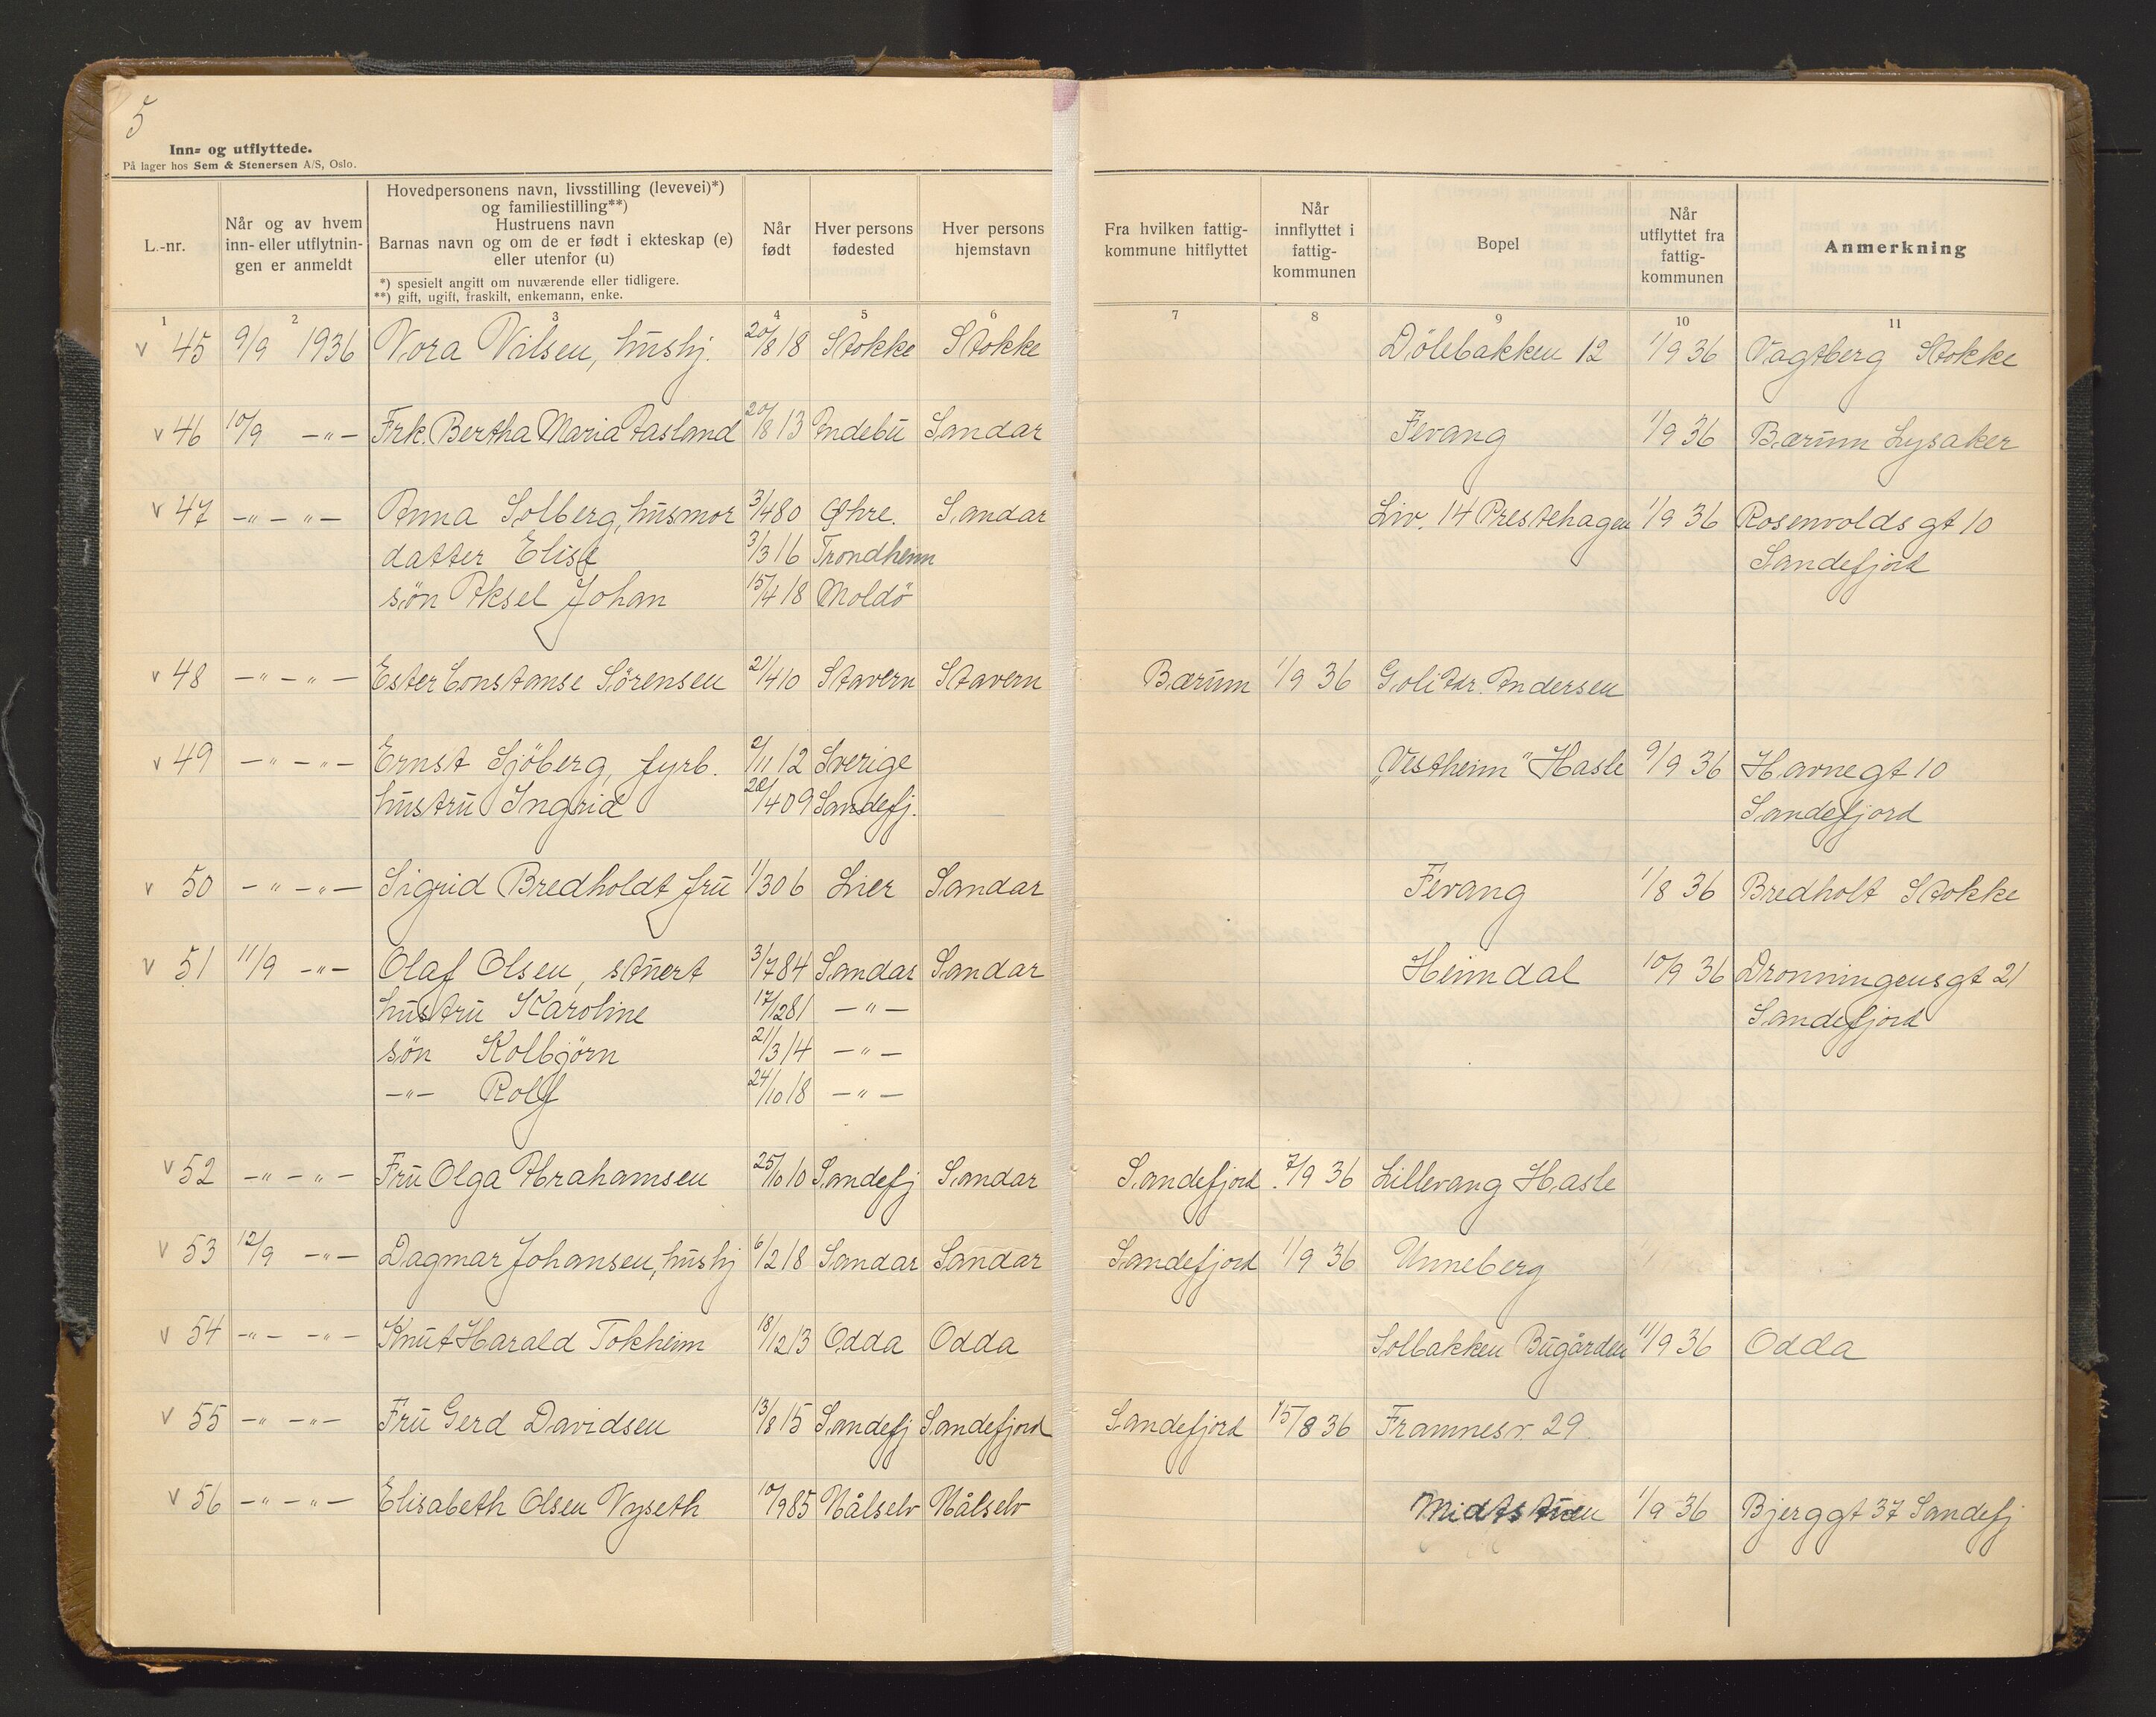 5
Inn- og utflyttede.
På lager hos Sem & Stenersen A/S, Oslo.
L.-nr.
Når og av hvem
inn- eller utflytnin-
gen er anmeldt
Hovedpersonens navn, livsstilling (levevei)*)
og familiestilling**)
Hustruens navn
Barnas navn og om de er født i ekteskap (e)
eller utenfor (u)
*) spesielt angitt om nuværende eller tidligere.
**) gift, ugift, fraskilt, enkemann, enke.
Når
født
Hver persons
fødested
Hver persons
hjemstavn
Fra hvilken fattig-
kommune hitflyttet
Når
innflyttet i
fattig-
kommunen
Bopel
Når
utflyttet fra
fattig-
kommunen
Anmerkning
1 2 3 4 5 6 7 8 9 10 11
v 45 9/9 1936 Nora Nilsen, hushj. 20/8 18 Stokke Stokke Dölebakken 12 1/9 36 Vagtberg Stokke
v 46 10/9 -"- Frk. Bertha Maria Aasland 20/8 13 Andebu Sandar Fevang 1/9 36 Bærum Lysaker
v 47 -"-"- Anna Solberg, husmor 3/4 80 Øhre. Sandar Liv. 14 Prestehagen 1/9 36 Rosenvolds gt 10
datter Elise 3/3 16 Trondheim Sandefjord
søn Aksel Johan 15/4 18 Moldö
v 48 -"-"- Ester Constanse Sörensen 21/4 10 Stavern Stavern Bærum 1/9 36 Goli Adr. Andersen
v 49 -"-"- Ernst Sjöberg, fyrb. 2/11 12 Sverige "Vestheim" Hasle 9/9 36 Havnegt 10
hustru Ingrid 20/4 09 Sandefj. Sandefjord
v 50 -"-"- Sigrid Bredholdt fru 1/3 06 Lier Sandar Fevang 1/8 36 Bredholt Stokke
v 51 11/9 -"- Olaf Olsen, stuert 3/7 84 Sandar Sandar Heimdal 10/9 36 Dronningensgt 21
hustru Karoline 17/12 81 -"- Sandefjord
søn Kolbjörn 21/3 14 -"-
-"- Rolf 24/10 18 -"-
v 52 -"-"- Fru Olga Abrahamsen 25/10 10 Sandefj Sandar Sandefjord 7/9 36 Lillevang Hasle
v 53 12/9 -"- Dagmar Johansen, hushj 6/2 18 Sandar Sandar Sandefjord 1/9 36 Unneberg
v 54 -"- -"- Knut Harald Tokheim 18/12 13 Odda Odda Solbakken Bugården 11/9 36 Odda
v 55 -"- -"- Fru Gerd Davidsen 13/8 15 Sandefj Sandefjord Sandefjord 15/8 36 Framnesv. 29
v 56 -"-"- Elisabeth Olsen Nyseth 10/9 85 Målselv Målselv Midtstuen 1/9 36 Bjerggt 37 Sandefj